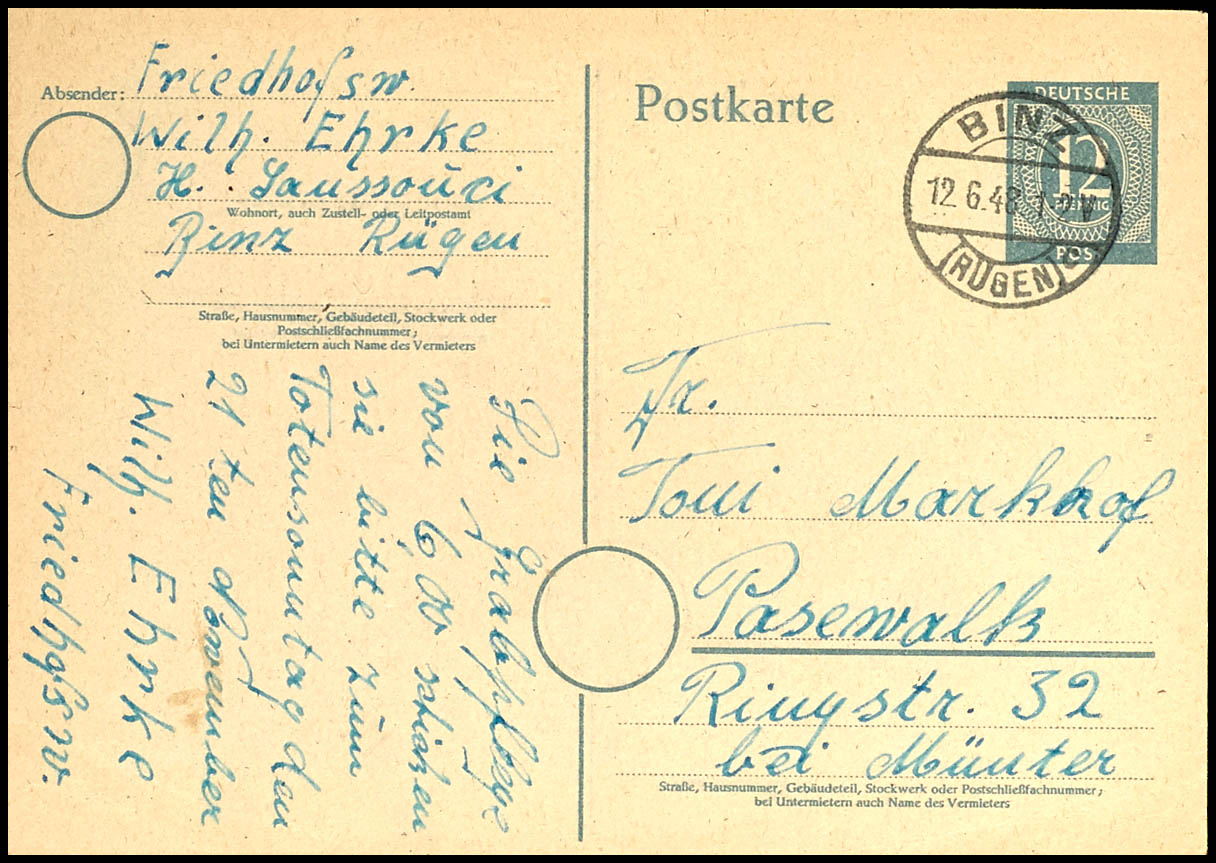 Absender: Friedhofsw.
Wilh. Ehrke
H. Saussouci
Wohnort, auch Zustell- oder Leitpostamt
Binz Rügen
Straße, Hausnummer, Gebäudeteil, Stockwerk oder
Postschließfachnummer;
bei Untermietern auch Name des Vermieters
Die Grabpflege
von 6 M schicken
sie bitte zum
Totensonntag den
21ten November
Wilh. Ehrke
Friedhofsw.
Postkarte
DEUTSCHE
12
POST
BINZ
12.6.48
(RÜGEN)
Fr.
Toni Markhof
Pasewalk
Ringstr. 32
bei Münter
Straße, Hausnummer, Gebäudeteil, Stockwerk oder Postschließfachnummer;
bei Untermietern auch Name des Vermieters